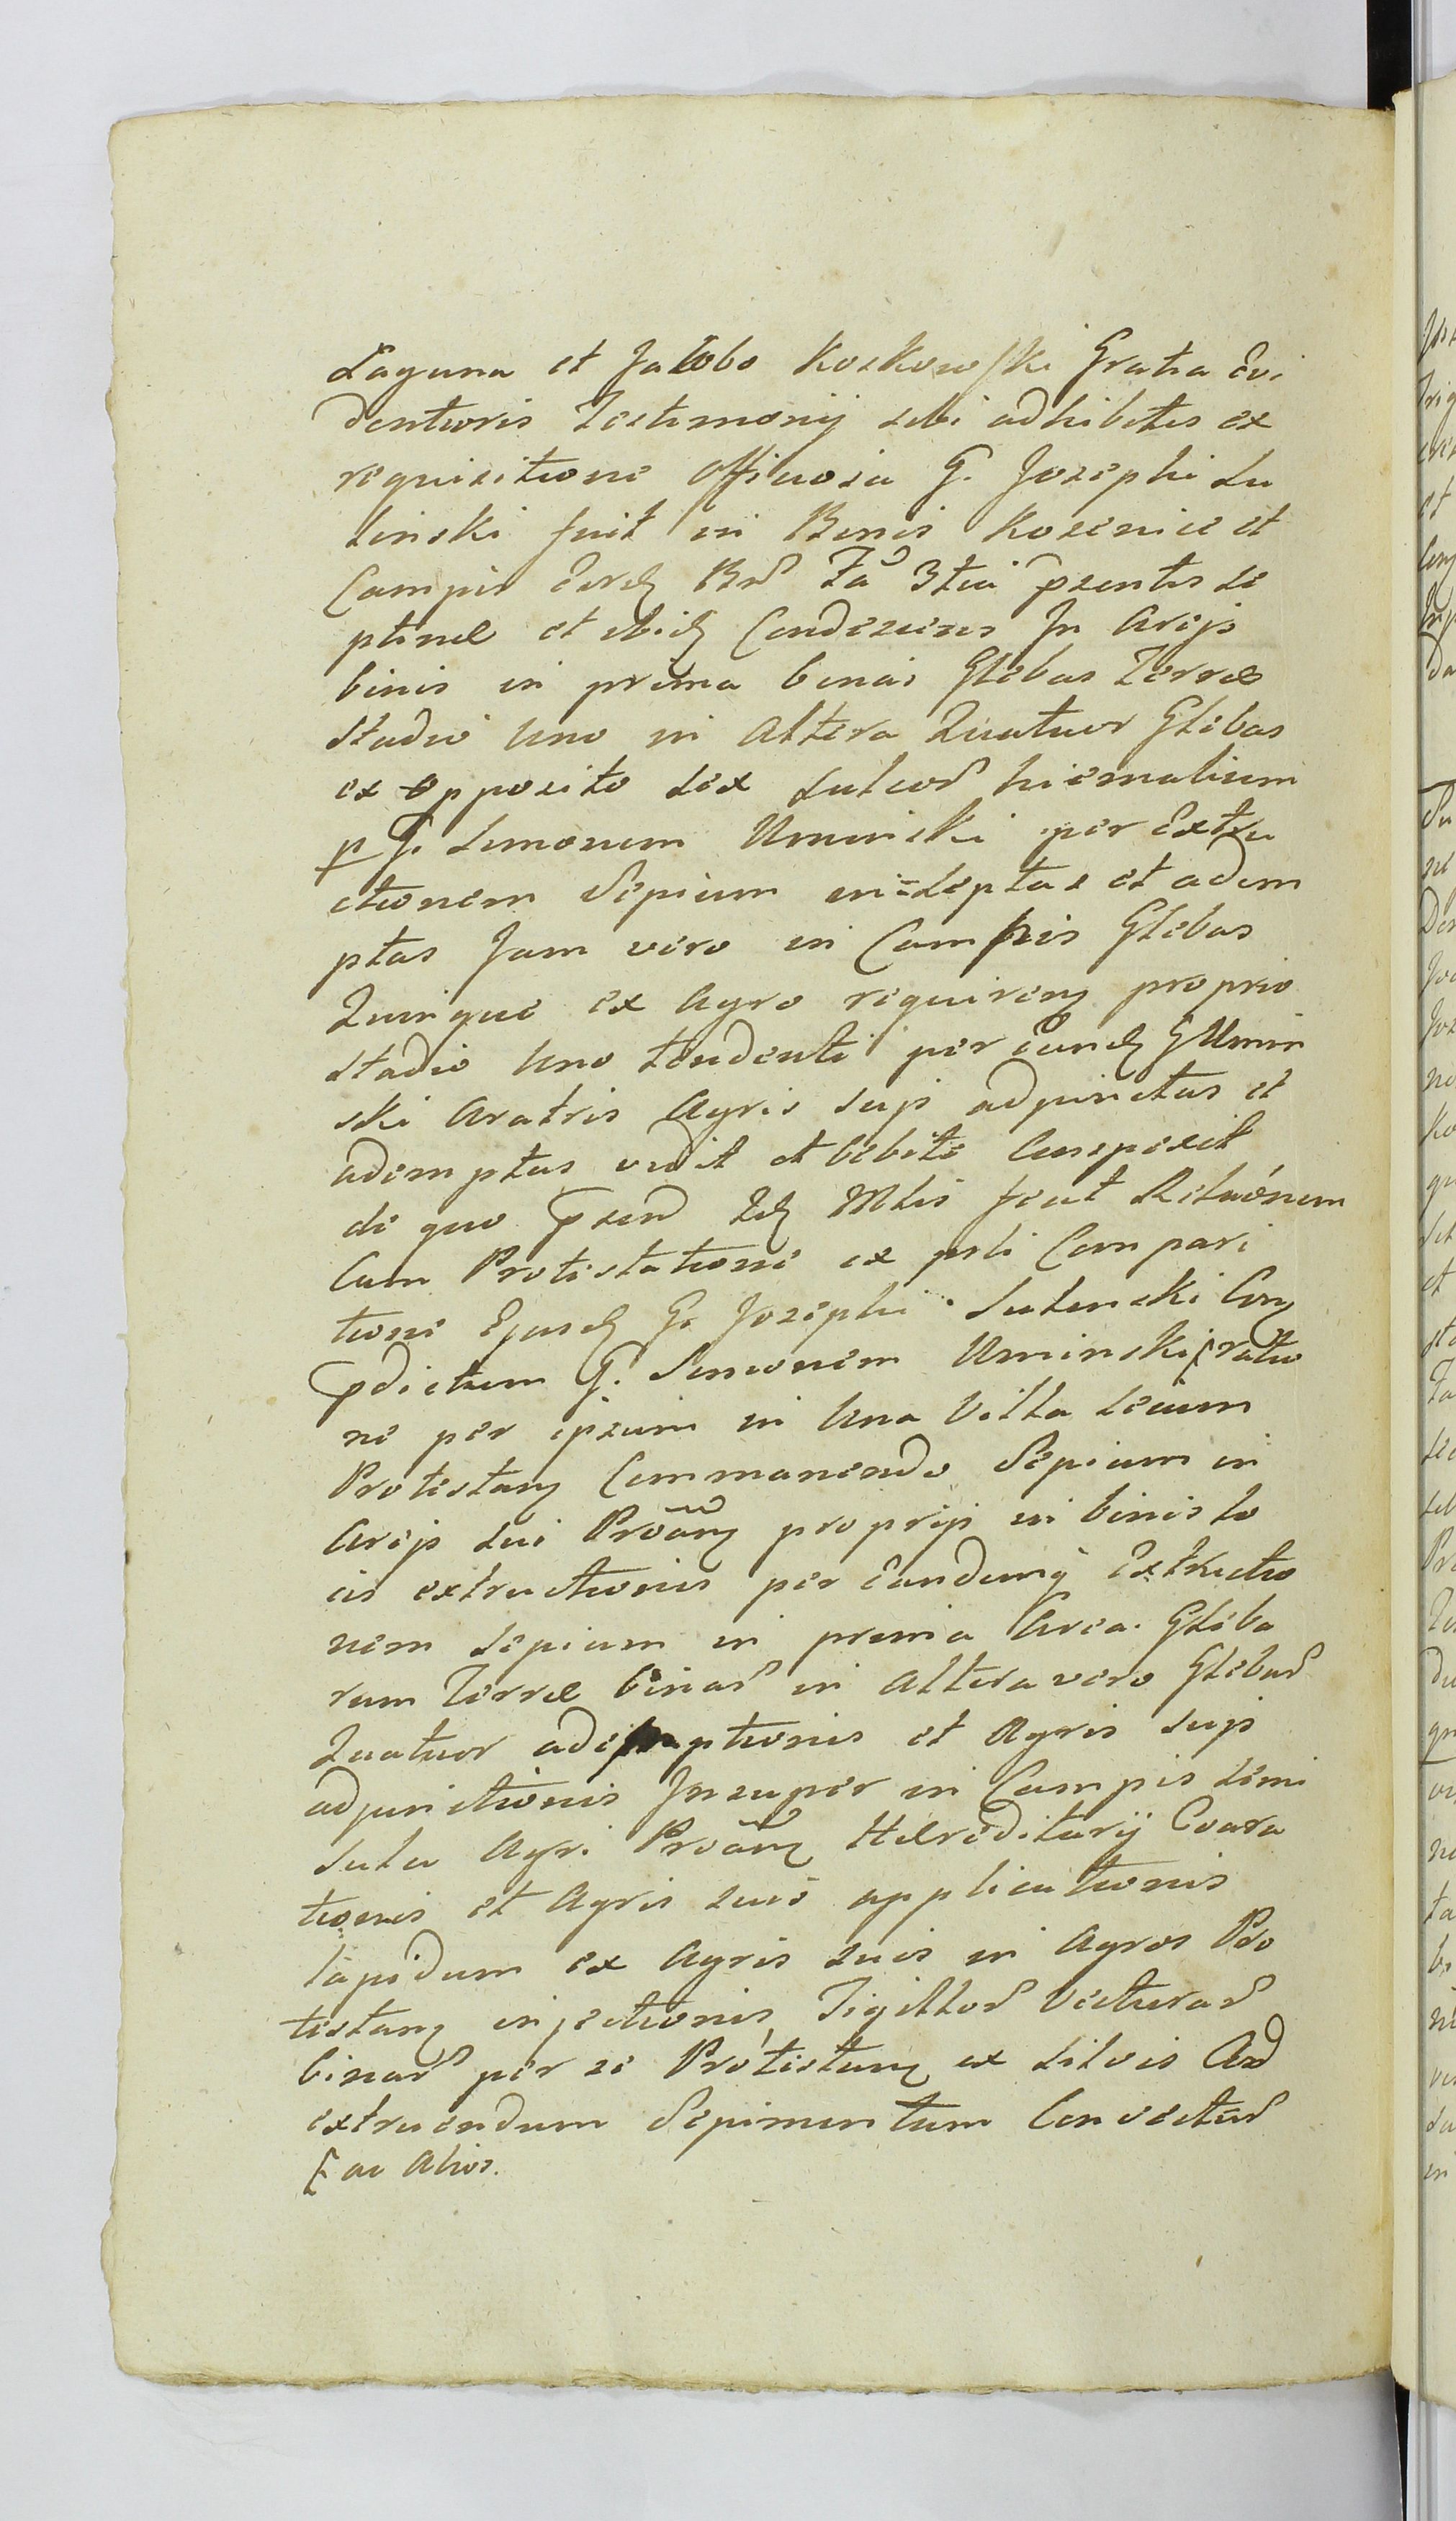 Laguna et Jacobo Koskowski Gratia Evi
dentioris Testimonij sibi adhibitis ex
requisitione officiosa G. Josephi Su
linski fuit in Bonis Kosenice et
Campis Eord Bnor Fa 3tia pzentis Se
ptimae et ibid Condezcens In Areis
binis in prima binas Glebas Terrae
Stadio Uno in Altera Quatuor Glebas
ex opposito sex sulcor hiemalium
p G. Simonem Uminski per Extru
ctionem Sepium in=septas et adem
ptas Jam vero in Campis Glebas
Quinque ex Agro requiren proprio
stadio Uno tendenti per Eund G Umin
ski Aratris Agris suis adjunctas et
ademptas vidit et debite Conspexit
de quo pzen Id Mlis fecit Relaonem
Cum Protestatione ex psli Compari
tione Ejusd G. Josephi Sulinski Con
pdictum G. Simonem Uminski ratio
ne per ipsum in Una Villa secum
Protestan Commanendo Sepium in
Areis sui Proan proprijs in binis lo
cis extructionis per Eandemq Extructio
nem Sepium in prima Area Gleba
rum Terrae binar in Altera vero Glebar
Quatuor ademptionis et Agris suis
adjunctionis Insuper in Campis simi
Agri Proan Haereditarij Coara
tionis et Agris suis applicationis
lapidum ex Agris suis in Agros Pro
testan injectionis, Tigillor Vecturar
binar per se Protestan ex silvis Ad
extruendum Sepimentum Convectar
ac Alios.